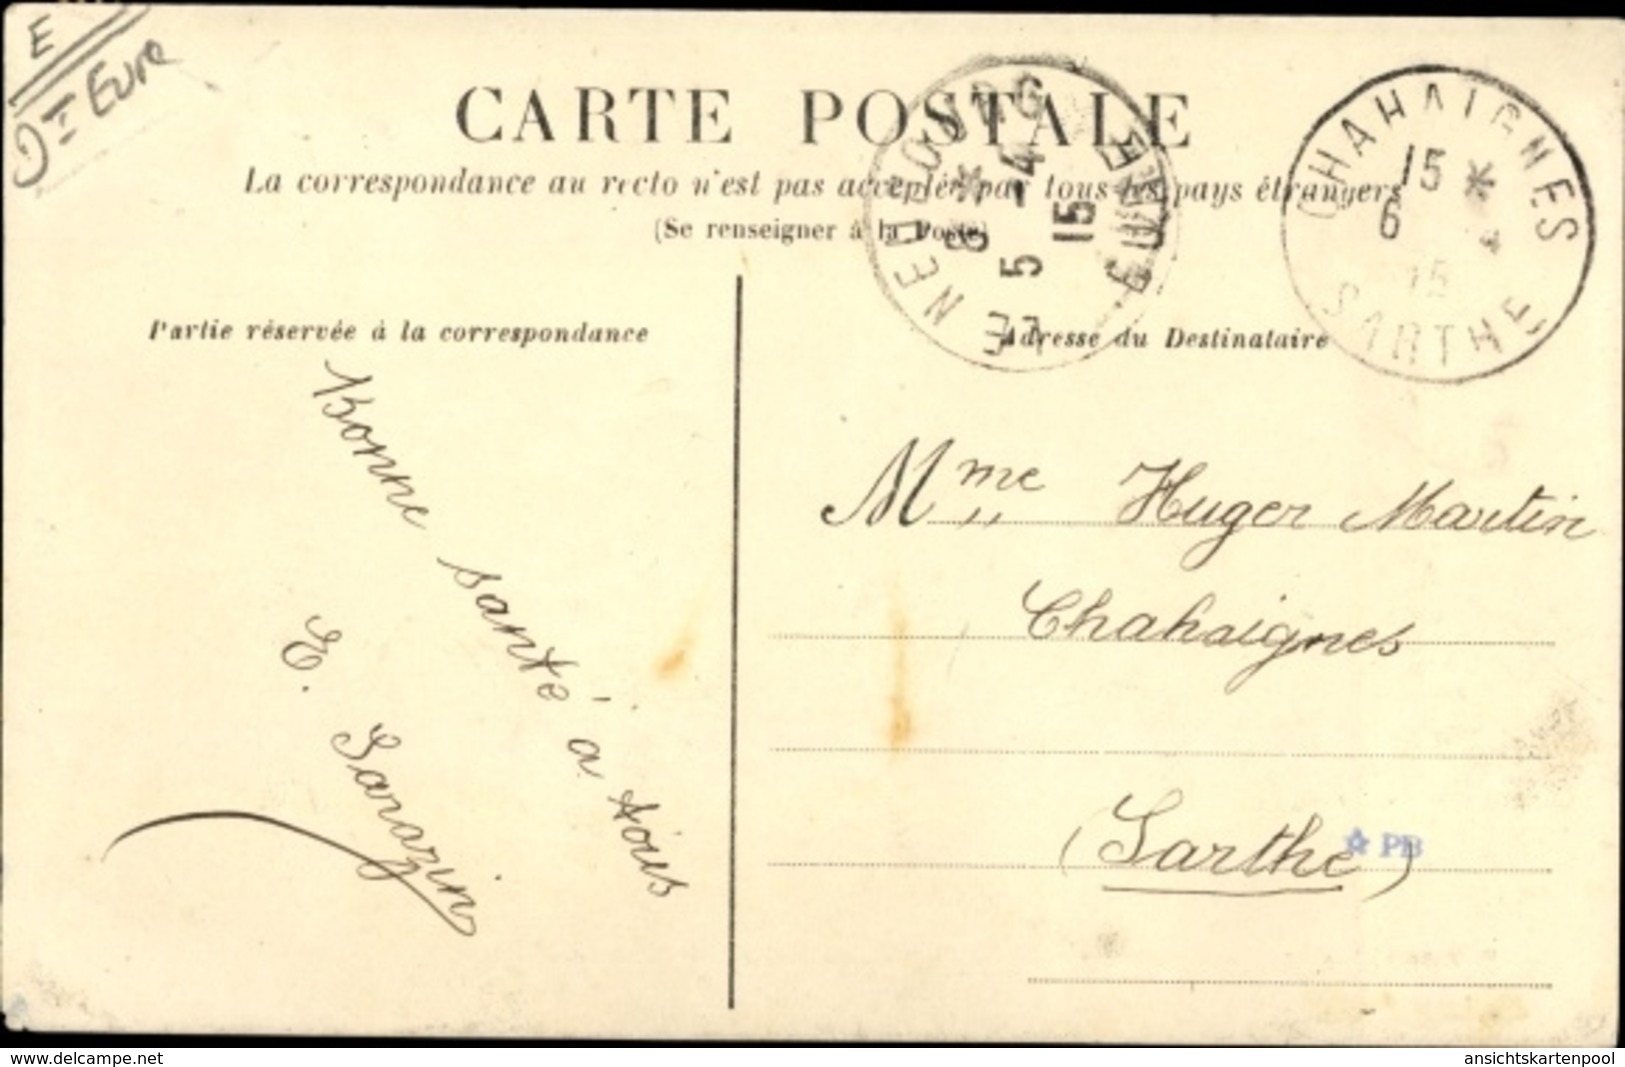 E
Dt Eure
CARTE POSTALE
La correspondance au recto n'est pas acceptée par tous les pays étrangers
(Se renseigner à la Poste)
LE NEUBOURG
EURE
6 * 
5 -4
15
CHAHAIGNES
15 *
6
15
SARTHE
Partie réservée à la correspondance
Adresse du Destinataire
Bonne santé à tous
E. Sarazin
Mme Huger Martin
Chahaignes
(Sarthe)
PB
www.delcampe.net
ansichtskartenpool